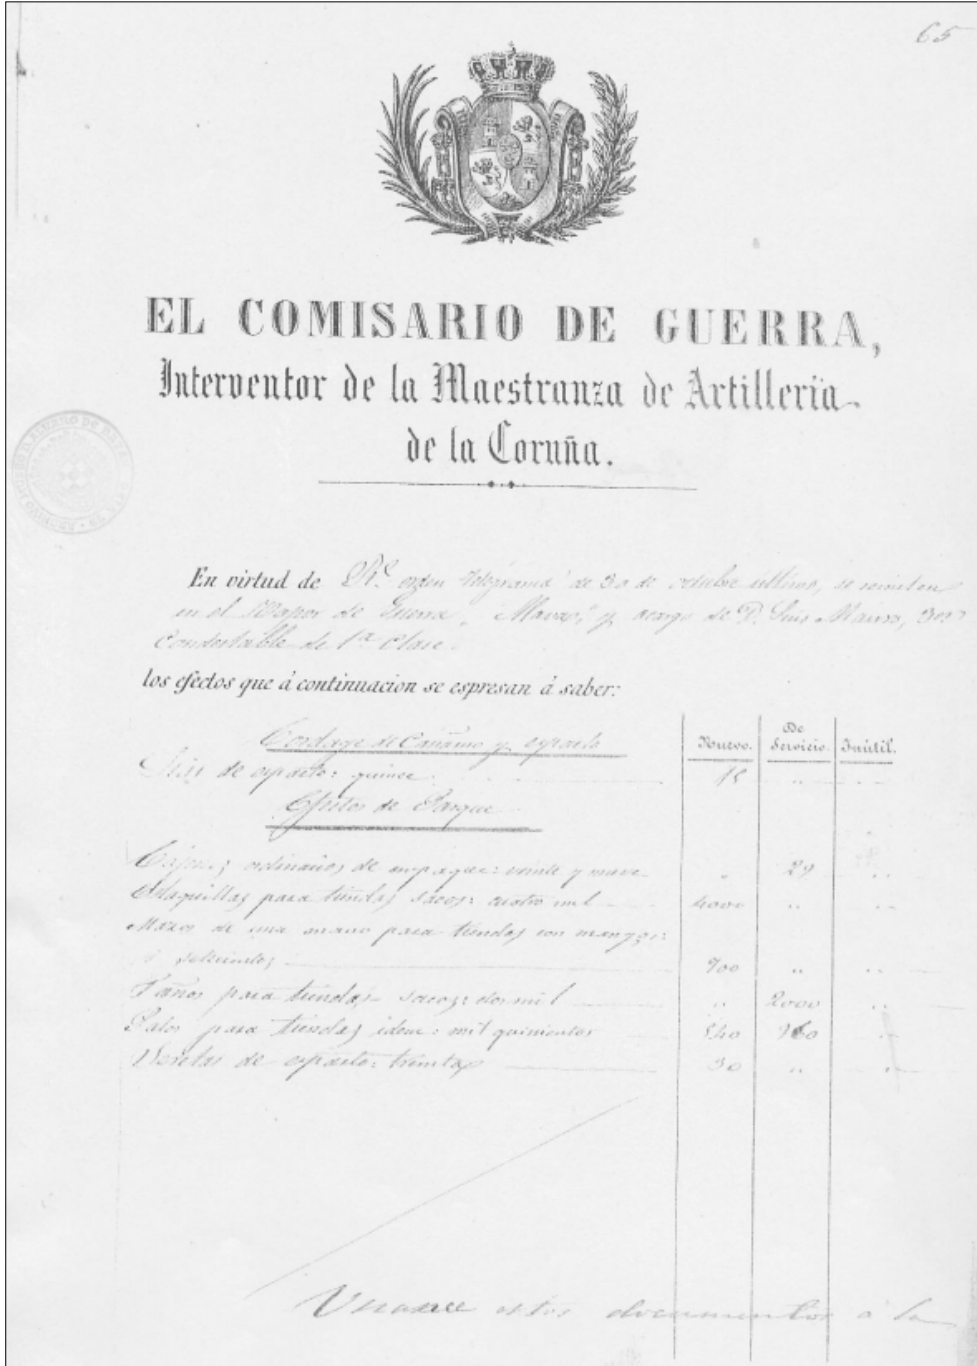 65
EL COMISARIO DE GUERRA,
Interventor de la Maestranza de Artillería
de la Coruña.
En virtud de Rl. orden telégrama de 30 de octubre último, se remiten
en el Vapor de Guerra, y acargo de D. Luis
Condestable de 1ª Clase.
los efectos que á continuacion se espresan á saber:
Nuevo. De Servicio. Inútil.
Cordage de Cáñamo y esparto
de esparto: quince 15 " "
Efectos de Parque
Cajones ordinarios de empaque: veinte y nueve " 29 "
Estaquillas para tiendas sacos: cuatro mil 4000 " "
Mazos de una mano para tiendas con mangos:
700 " "
Paños para tiendas sacos: dos mil " 2000 "
Palos para tiendas idem: mil quinientos 540 960 "
de esparto: treinta 30 " "
estos documentos á la